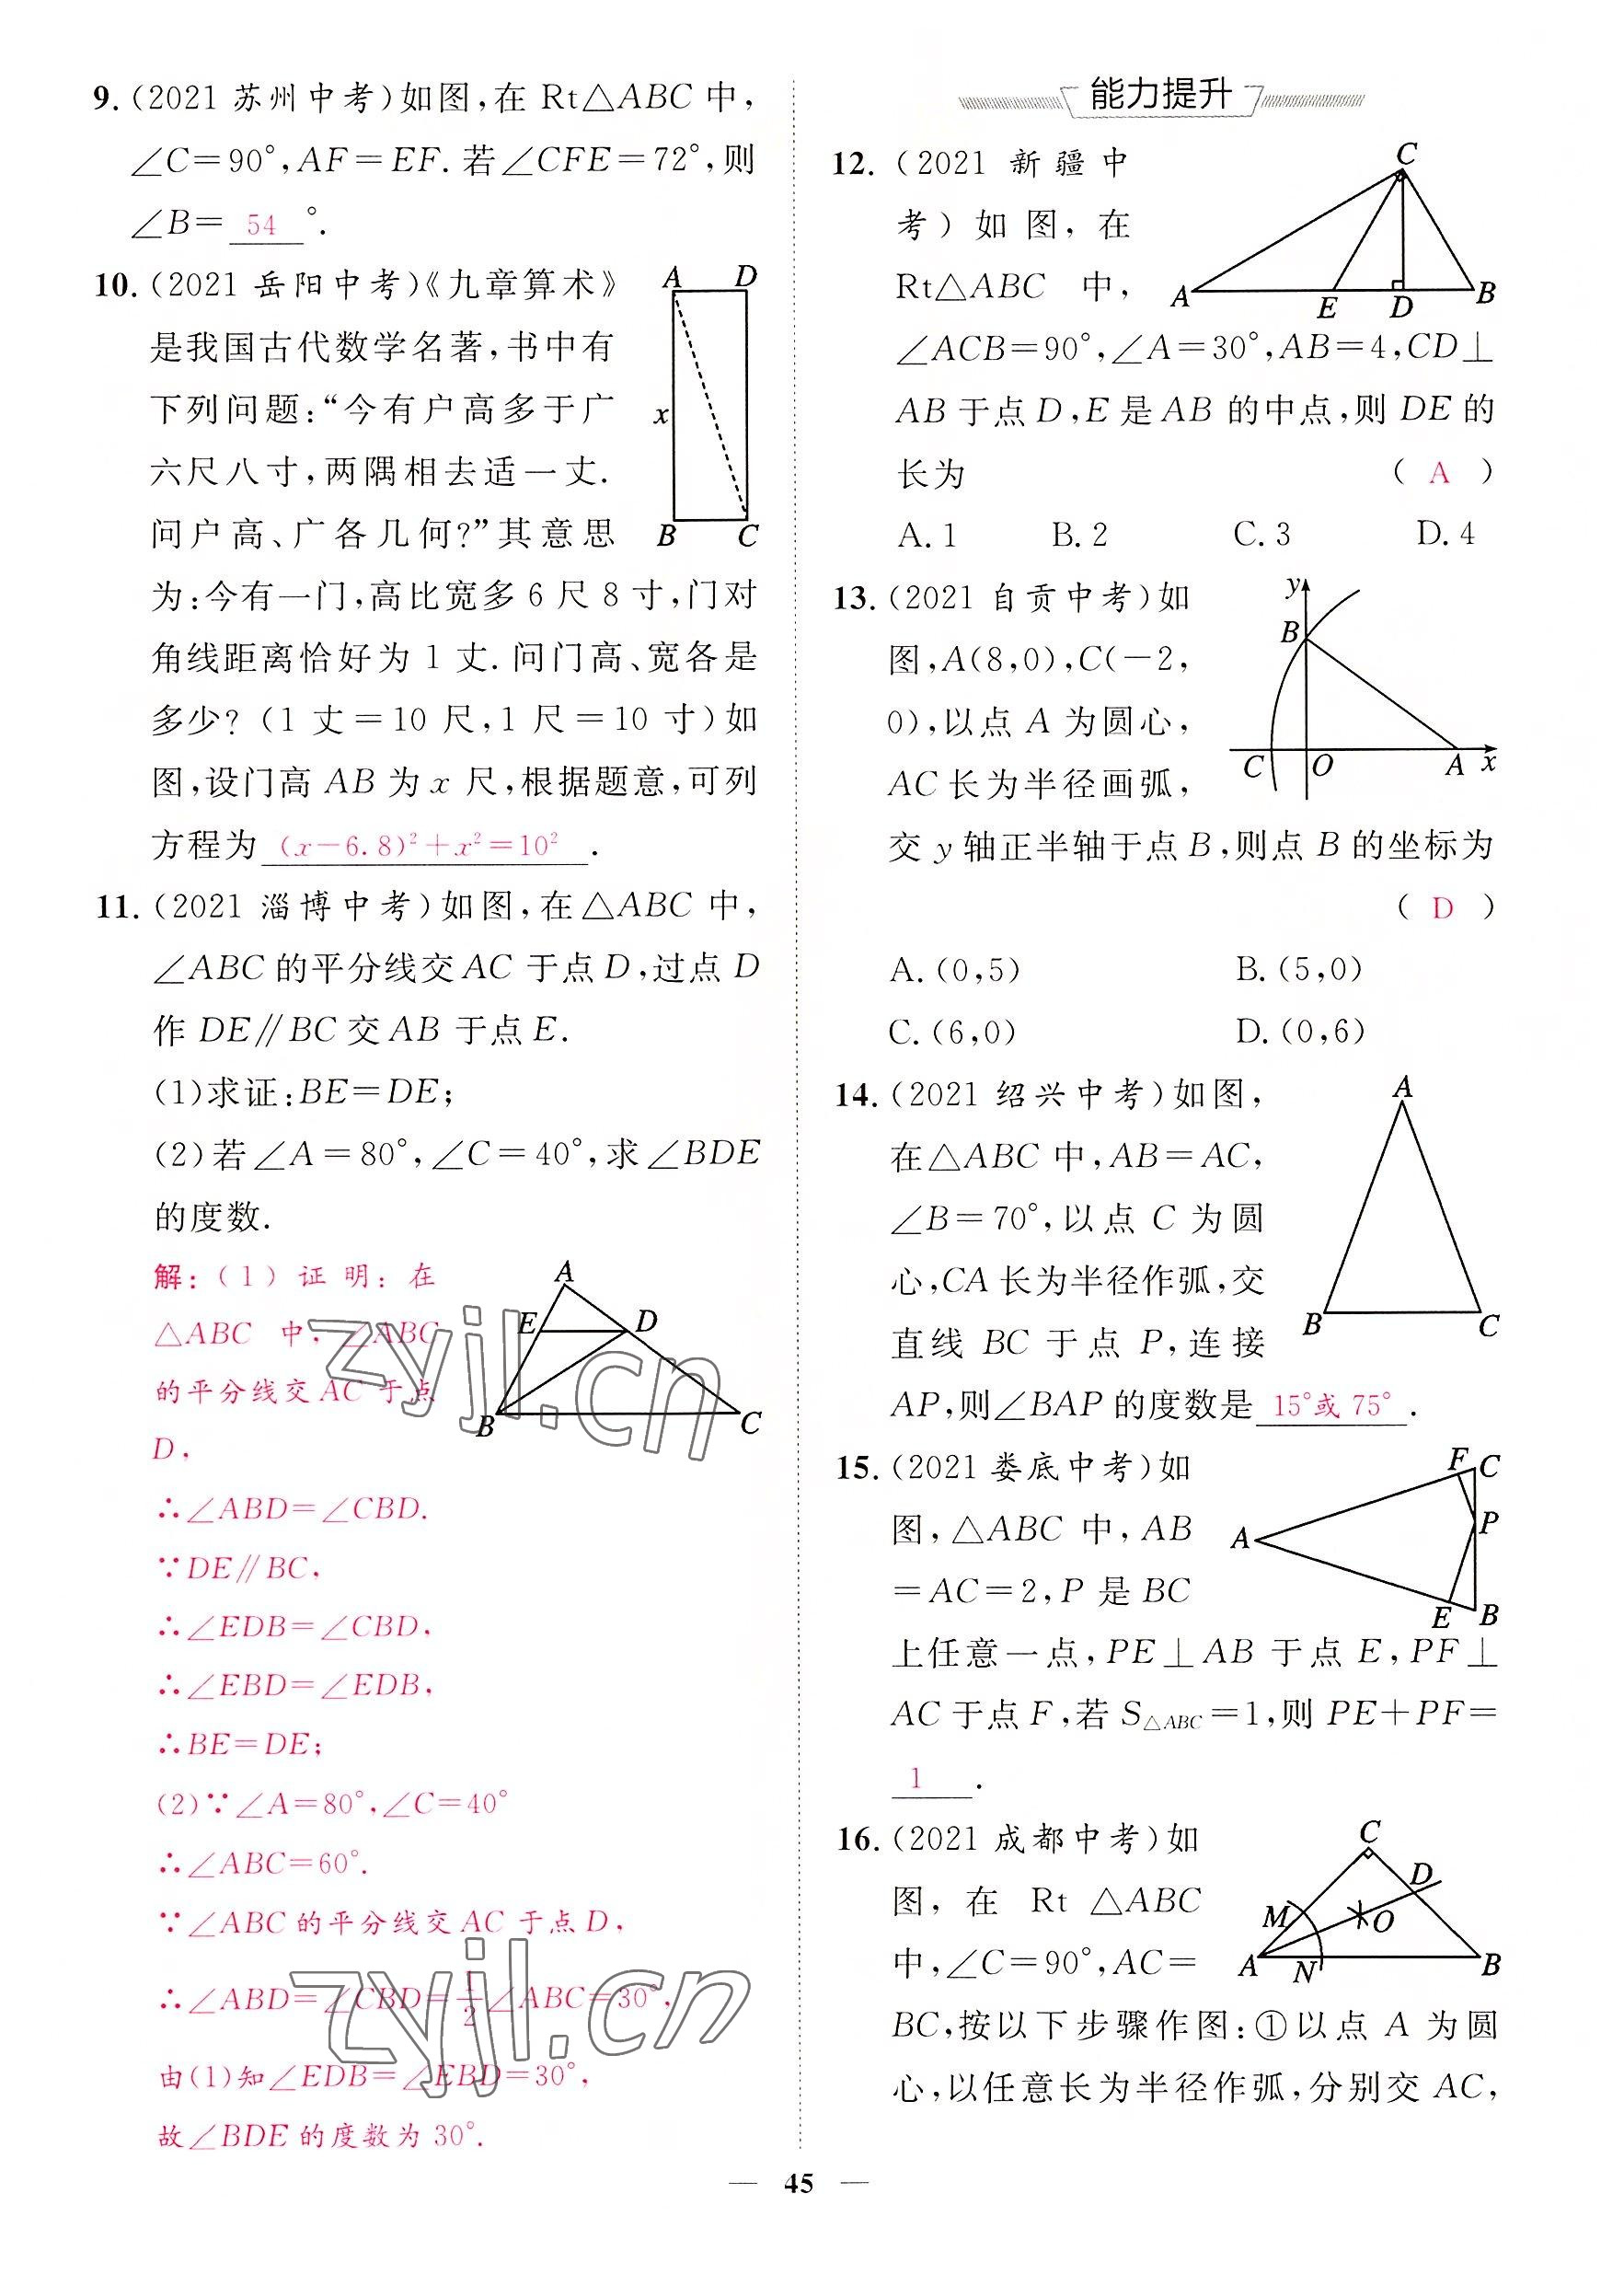 9.(2021 苏州中考)如图,在 Rt△ABC 中,
∠C=90°,AF=EF.若∠CFE=72°,则
∠B= 54 °.
10.(2021 岳阳中考)《九章算术》
是我国古代数学名著,书中有
下列问题:“今有户高多于广
六尺八寸,两隅相去适一丈.
问户高、广各几何?”其意思
为:今有一门,高比宽多 6 尺 8 寸,门对
角线距离恰好为 1 丈.问门高、宽各是
多少?(1 丈=10 尺,1 尺=10 寸)如
图,设门高 AB 为 x 尺,根据题意,可列
方程为 (x-6.8)²+x²=10² .
A D
x
B C
11.(2021 淄博中考)如图,在△ABC 中,
∠ABC 的平分线交 AC 于点 D,过点 D
作 DE∥BC 交 AB 于点 E.
(1)求证:BE=DE;
(2)若∠A=80°,∠C=40°,求∠BDE
的度数.
解:(1)证明:在
△ABC 中,∠ABC
的平分线交 AC 于点
D,
A
E D
B C
∴∠ABD=∠CBD.
∵DE∥BC,
∴∠EDB=∠CBD,
∴∠EBD=∠EDB,
∴BE=DE;
(2)∵∠A=80°,∠C=40°
∴∠ABC=60°.
∵∠ABC 的平分线交 AC 于点 D,
∴∠ABD=∠CBD=1/2∠ABC=30°,
由(1)知∠EDB=∠EBD=30°,
故∠BDE 的度数为 30°.
zyjl.cn
zyjl.cn
能力提升
12.(2021 新疆中
考)如图,在
Rt△ABC 中,
∠ACB=90°,∠A=30°,AB=4,CD⊥
AB 于点 D,E 是 AB 的中点,则 DE 的
长为 ( A )
A.1 B.2 C.3 D.4
C
A E D B
13.(2021 自贡中考)如
图,A(8,0),C(-2,
0),以点 A 为圆心,
AC 长为半径画弧,
交 y 轴正半轴于点 B,则点 B 的坐标为
( D )
A.(0,5) B.(5,0)
C.(6,0) D.(0,6)
y
B
C O A x
14.(2021 绍兴中考)如图,
在△ABC 中,AB=AC,
∠B=70°,以点 C 为圆
心,CA 长为半径作弧,交
直线 BC 于点 P,连接
AP,则∠BAP 的度数是 15°或 75° .
A
B C
15.(2021 娄底中考)如
图,△ABC 中,AB
=AC=2,P 是 BC
上任意一点,PE⊥AB 于点 E,PF⊥
AC 于点 F,若 S△ABC=1,则 PE+PF=
1 .
F C
P
A
E B
16.(2021 成都中考)如
图,在 Rt △ABC
中,∠C=90°,AC=
BC,按以下步骤作图:①以点 A 为圆
心,以任意长为半径作弧,分别交 AC,
C
D
M O
A N B
— 45 —